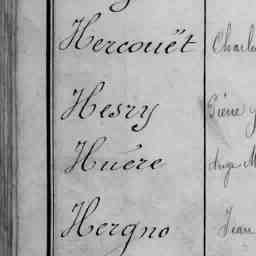 Hercouët Charle
Hesry Pierre
Huëre Ange M
Hergno Jean